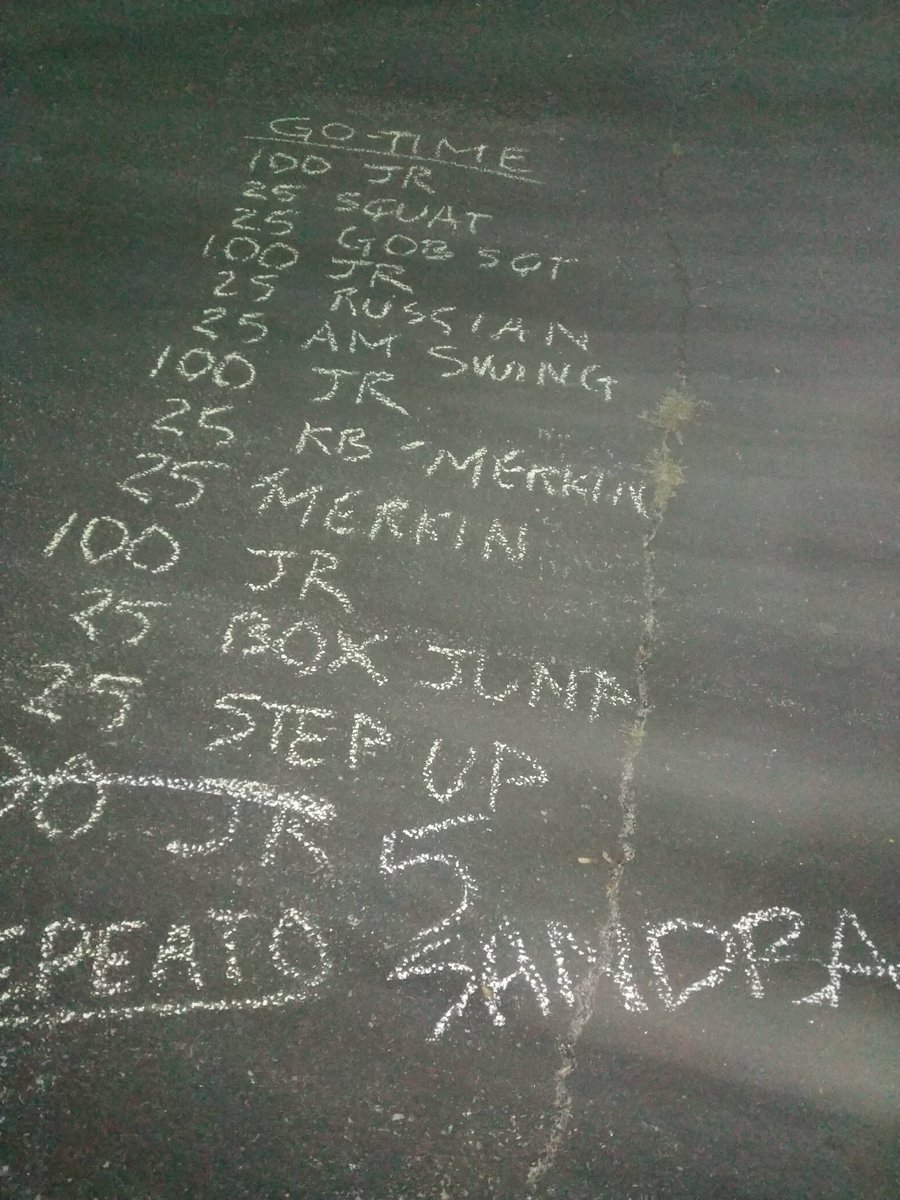 GO-TIME
100 JR
25 SQUAT
25 GOB SQT
100 JR
25 RUSSIAN
25 AM SWING
100 JR
25 KB-MERKIN
25 MERKIN
100 JR
25 BOX JUMP
25 STEP UP
00 JR
EPEATO
SANDRA